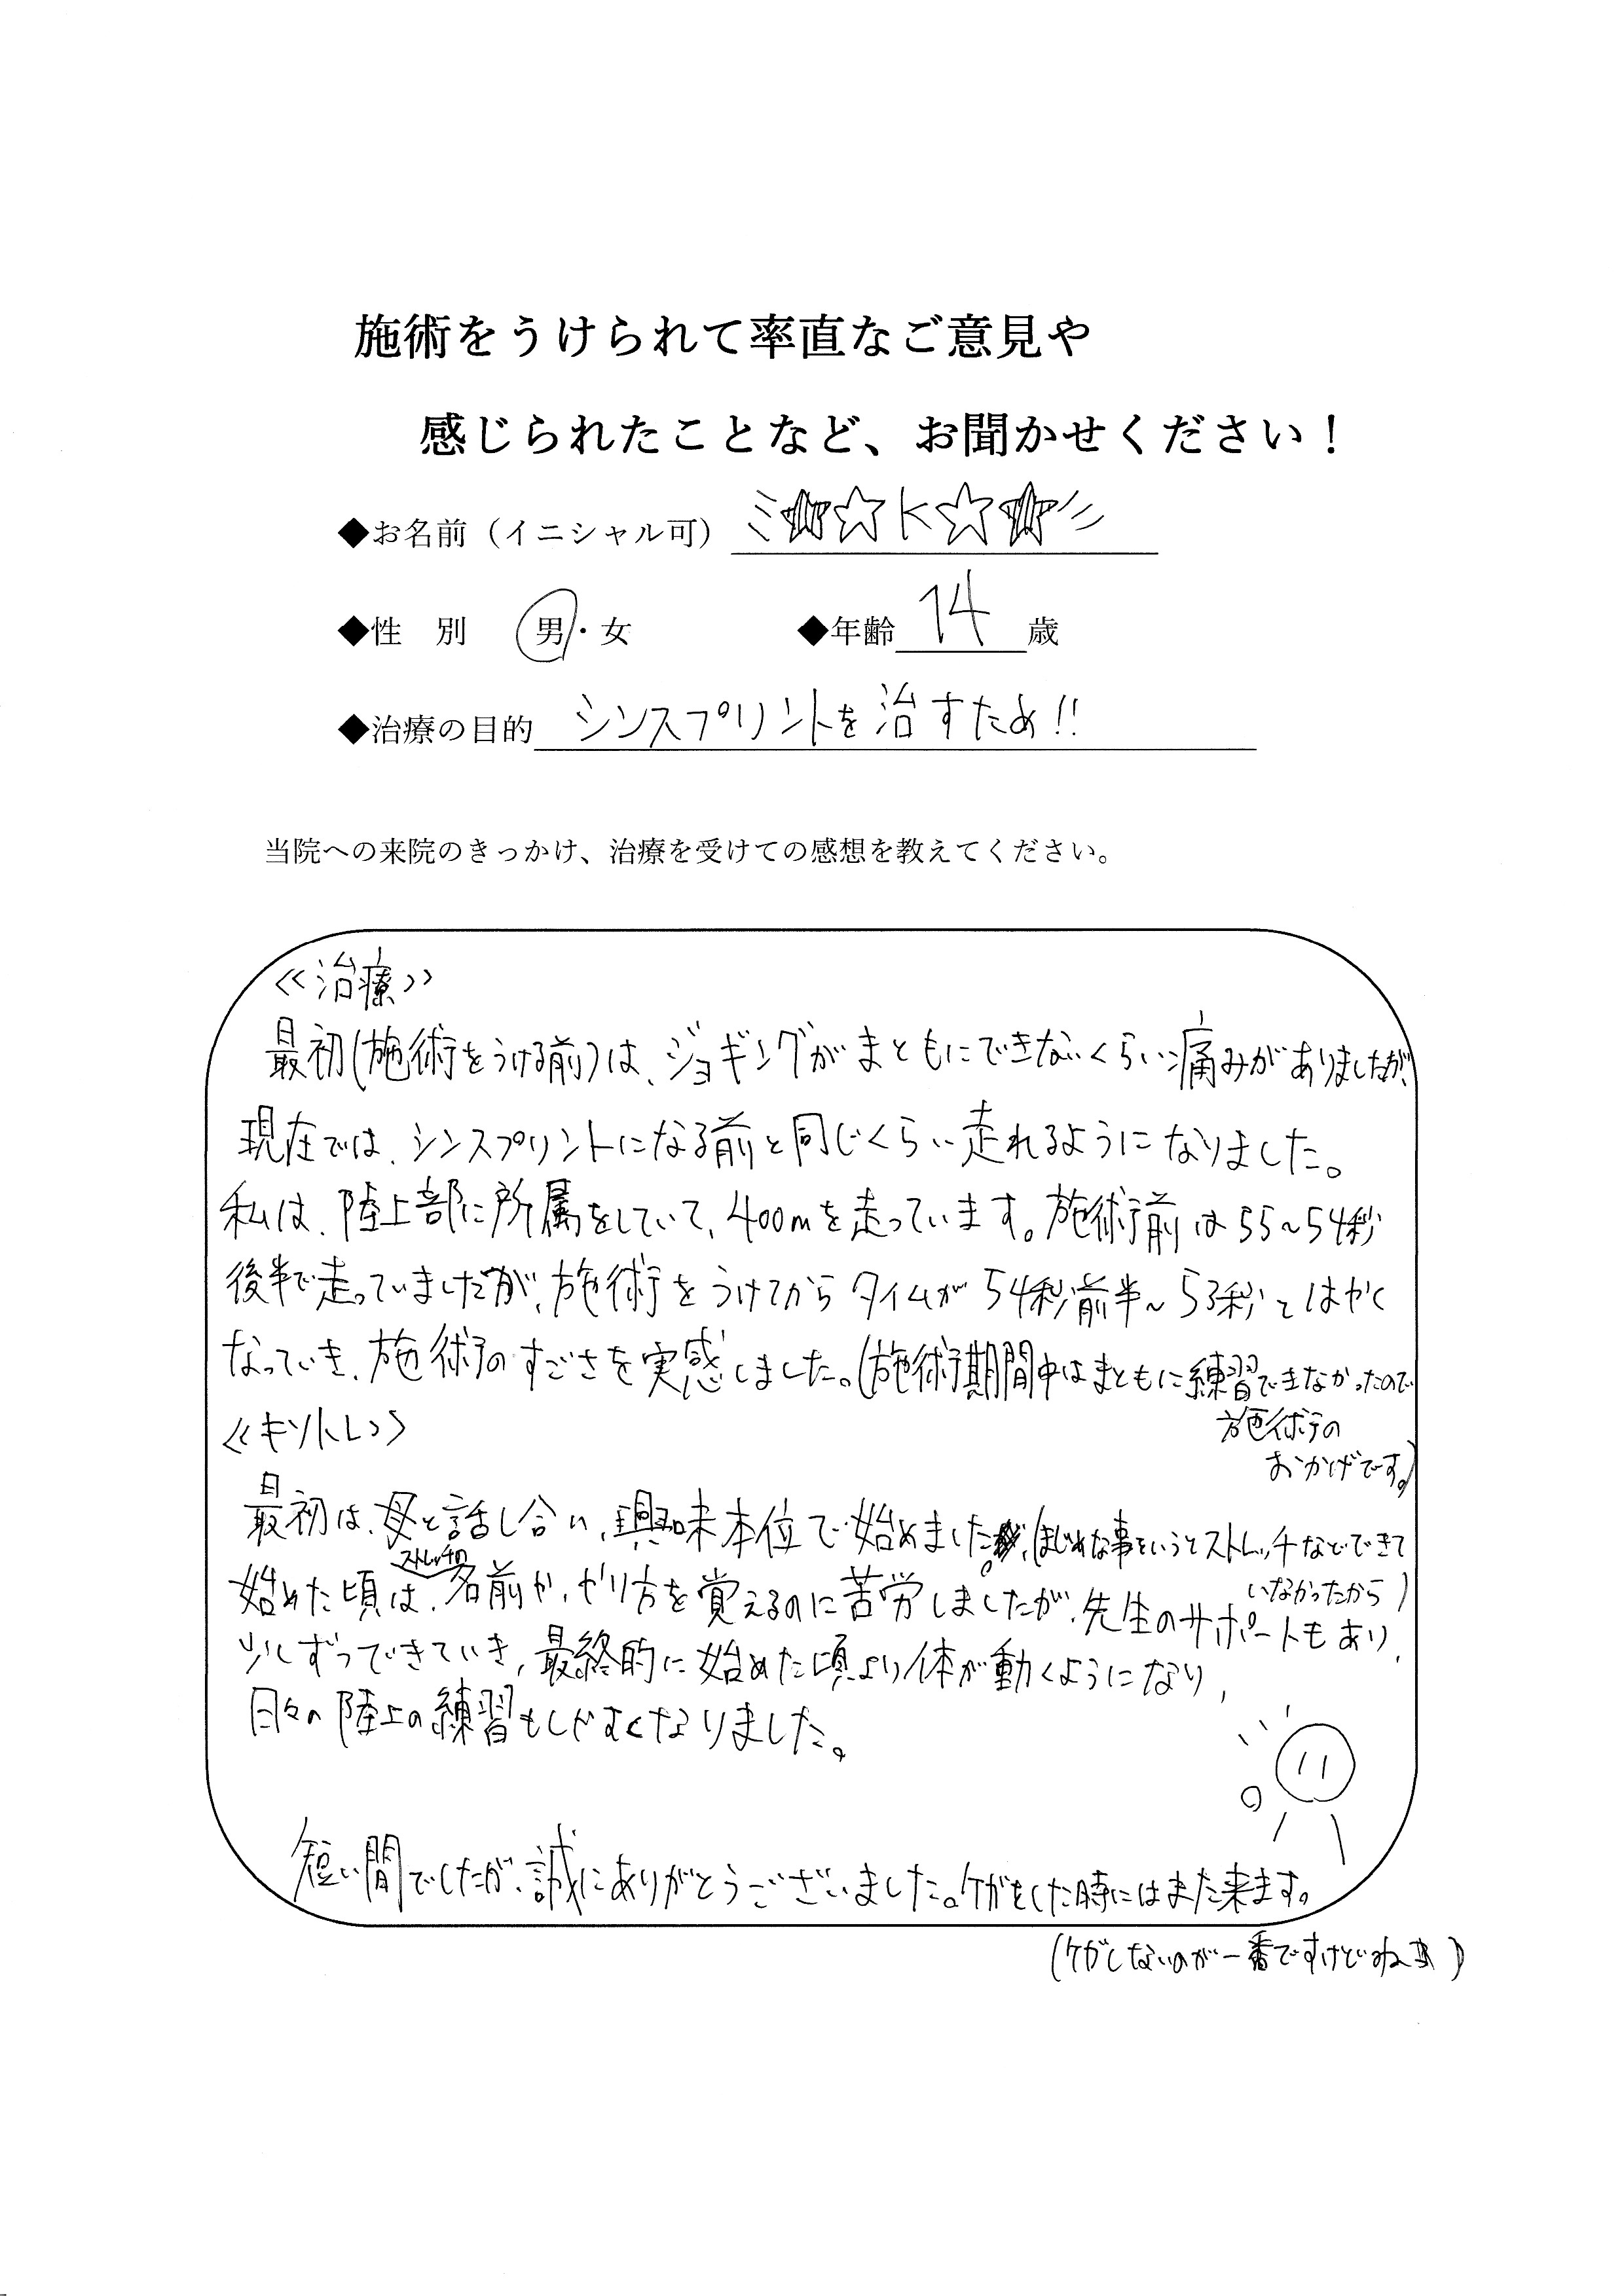 施術をうけられて率直なご意見や
感じられたことなど、お聞かせください！
◆お名前（イニシャル可） ミ★☆K☆★ミ
◆性　別　男・女　◆年齢 14 歳
◆治療の目的 シンスプリントを治すため!!
当院への来院のきっかけ、治療を受けての感想を教えてください。
≪治療≫
最初(施術をうける前)は、ジョギングがまともにできないくらい痛みがありましたが、
現在では、シンスプリントになる前と同じくらい走れるようになりました。
私は、陸上部に所属をしていて、400mを走っています。施術前は55～54秒
後半で走っていましたが、施術をうけてからタイムが54秒前半～53秒とはやく
なっていき、施術のすごさを実感しました。(施術期間中はまともに練習できなかったので
施術の
おかげです。)
≪キソトレ≫
最初は、母と話し合い、興味本位で始めました。(まじめな事をいうとストレッチなどできて
いなかったから)
始めた頃は、ストレッチの名前や、やり方を覚えるのに苦労しましたが、先生のサポートもあり、
少しずつできていき、最終的に始めた頃より体が動くようになり、
日々の陸上の練習もしやすくなりました。
短い間でしたが、誠にありがとうございました。ケガをした時にはまた来ます。
(ケガしないのが一番ですけどね)